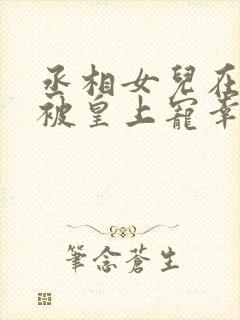 丞相女兒在
被皇上寵幸
筆念蒼生